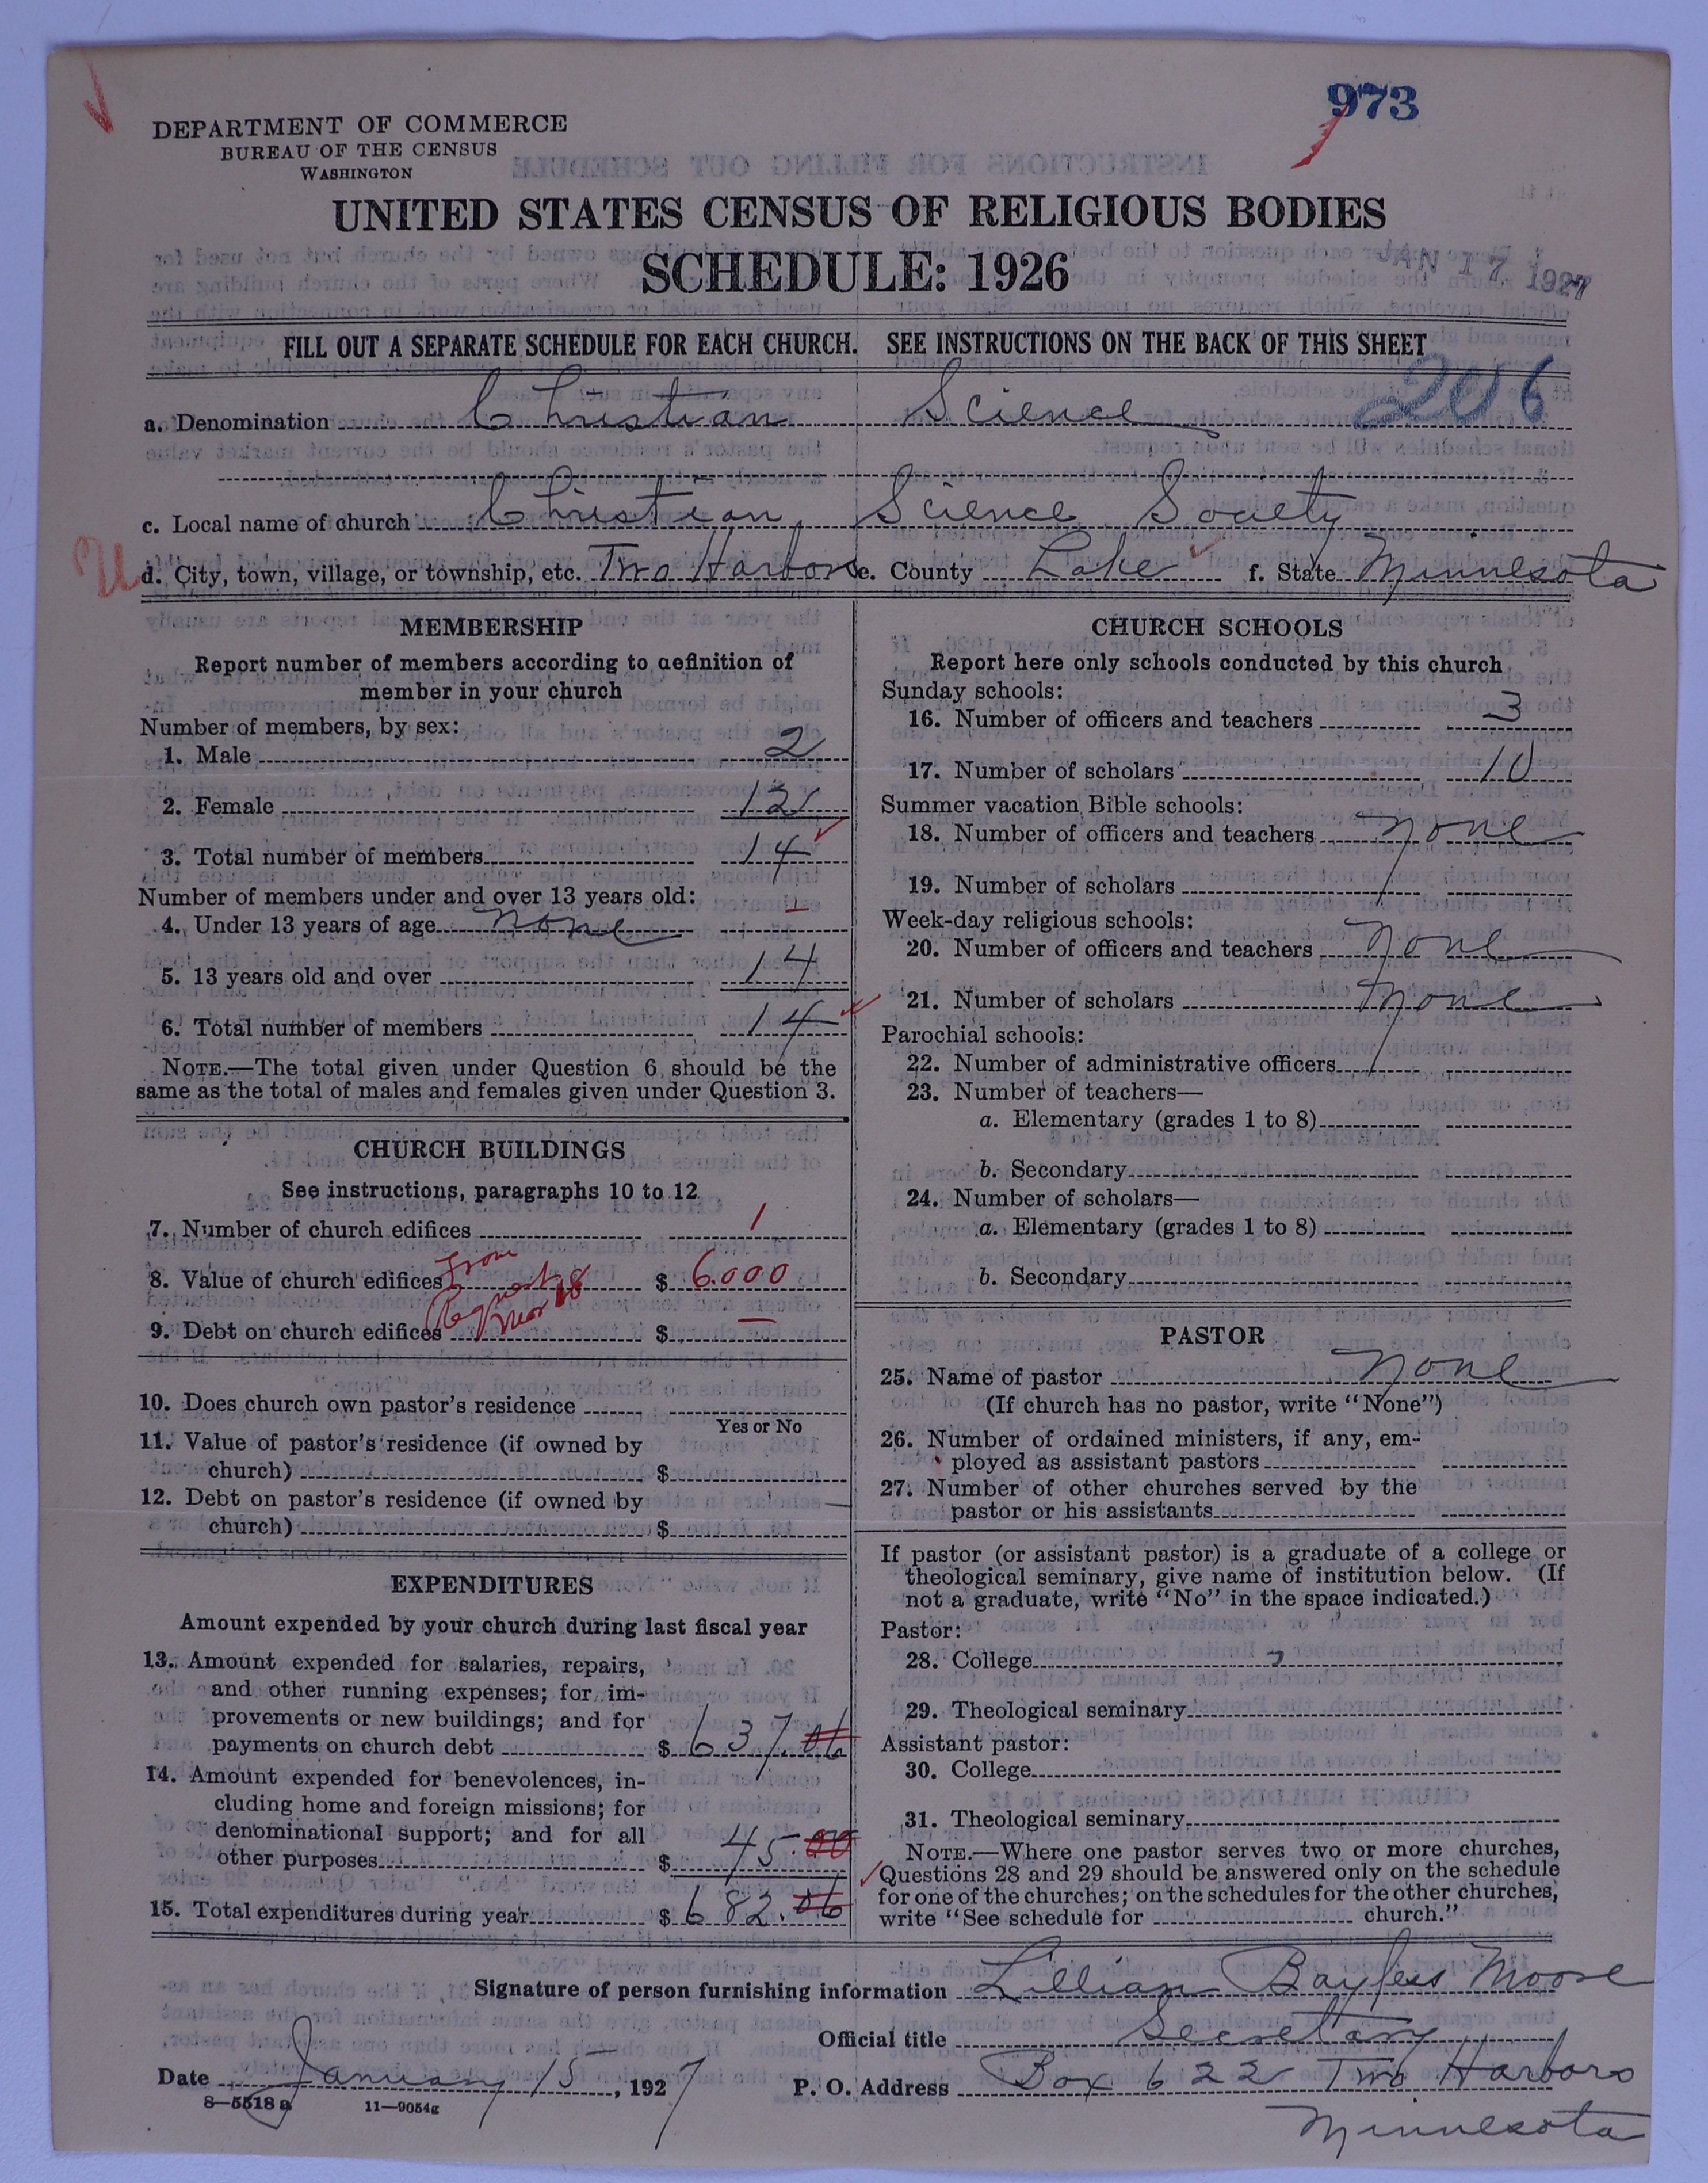 973
DEPARTMENT OF COMMERCE
BUREAU OF THE CENSUS
WASHINGTON
UNITED STATES CENSUS OF RELIGIOUS BODIES
SCHEDULE: 1926
JAN 17 1927
FILL OUT A SEPARATE SCHEDULE FOR EACH CHURCH. SEE INSTRUCTIONS ON THE BACK OF THIS SHEET
206
a. Denomination Christian Science
c. Local name of church Christian Science Society
U d. City, town, village, or township, etc. Two Harbors e. County Lake f. State Minnesota
MEMBERSHIP
Report number of members according to definition of
member in your church
Number of members, by sex:
1. Male 2
2. Female 12
3. Total number of members 14
Number of members under and over 13 years old:
4. Under 13 years of age none –
5. 13 years old and over 14
6. Total number of members 14
NOTE.—The total given under Question 6 should be the
same as the total of males and females given under Question 3.
CHURCH BUILDINGS
See instructions, paragraphs 10 to 12
7. Number of church edifices 1
8. Value of church edifices From $ 6.000
9. Debt on church edifices $ —
10. Does church own pastor's residence
Yes or No
11. Value of pastor's residence (if owned by
church) $
12. Debt on pastor's residence (if owned by
church) $
EXPENDITURES
Amount expended by your church during last fiscal year
13. Amount expended for salaries, repairs,
and other running expenses; for im-
provements or new buildings; and for
payments on church debt $ 637.06
14. Amount expended for benevolences, in-
cluding home and foreign missions; for
denominational support; and for all
other purposes $ 45.00
15. Total expenditures during year $ 682.06
CHURCH SCHOOLS
Report here only schools conducted by this church
Sunday schools:
16. Number of officers and teachers 3
17. Number of scholars 10
Summer vacation Bible schools:
18. Number of officers and teachers none
19. Number of scholars
Week-day religious schools:
20. Number of officers and teachers none
21. Number of scholars none
Parochial schools:
22. Number of administrative officers
23. Number of teachers—
a. Elementary (grades 1 to 8)
b. Secondary
24. Number of scholars—
a. Elementary (grades 1 to 8)
b. Secondary
PASTOR
25. Name of pastor none
(If church has no pastor, write "None")
26. Number of ordained ministers, if any, em-
ployed as assistant pastors
27. Number of other churches served by the
pastor or his assistants
If pastor (or assistant pastor) is a graduate of a college or
theological seminary, give name of institution below. (If
not a graduate, write "No" in the space indicated.)
Pastor:
28. College
29. Theological seminary
Assistant pastor:
30. College
31. Theological seminary
NOTE.—Where one pastor serves two or more churches,
Questions 28 and 29 should be answered only on the schedule
for one of the churches; on the schedules for the other churches,
write "See schedule for church."
Signature of person furnishing information Lillian Bayless Moore
Official title Secretary
Date January 15, 1927 P. O. Address Box 622 Two Harbors
Minnesota
8—5518 a 11—9054g